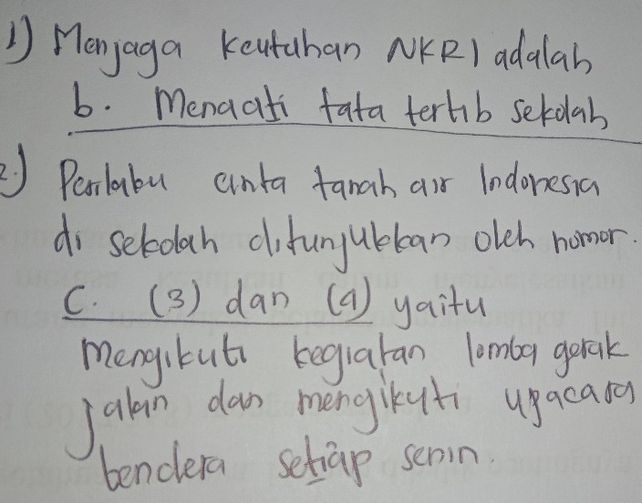 1) Menjaga keutuhan NKRI adalah
b. Menaati tata tertib sekolah
2.) Perilabu cinta tanah air Indonesia
di sekolah ditunjukkan oleh nomor.
C. (3) dan (4) yaitu
Mengikuti kegiatan lomba gerak
jalan dan mengikuti upacara
bendera setiap senin.